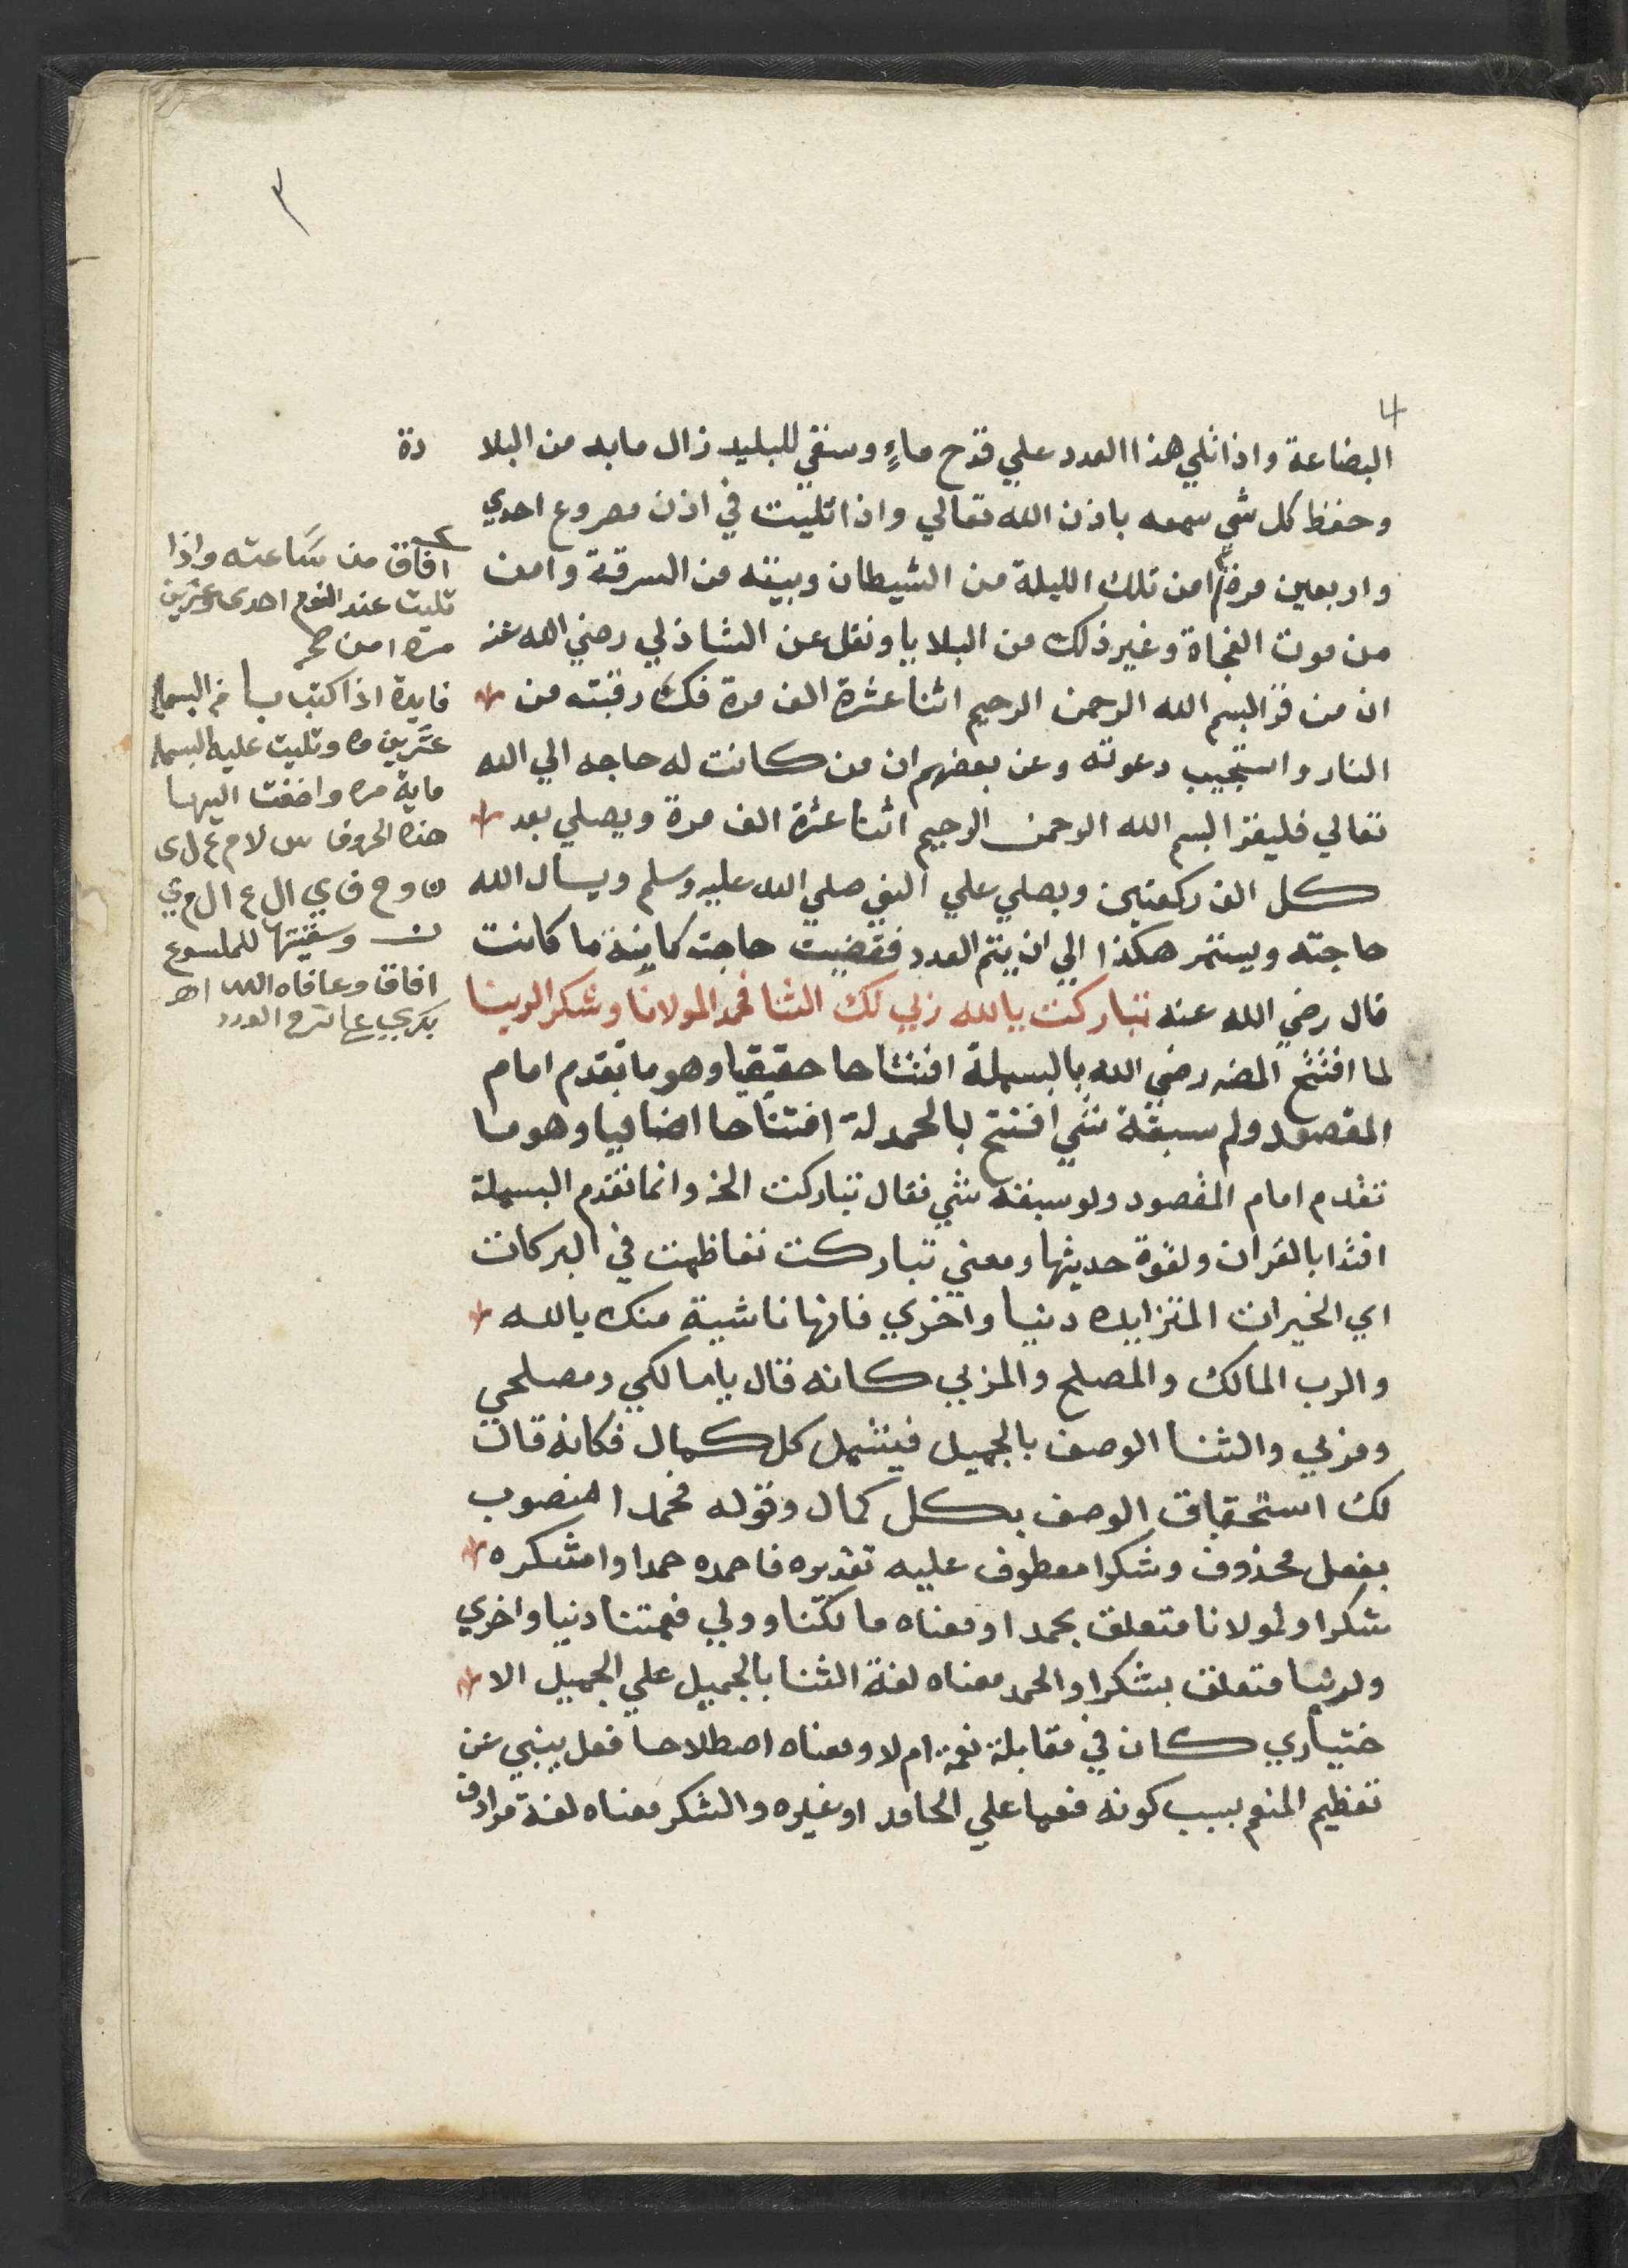 ٣
4
البضاعة واذا تلي هذا العدد علي قدح ماءٍ وسقي للبليد زال ما به من البلا دة
وحفظ كل شي سمعه باذن الله تعالي واذا تليت في اذن مصروع احدي
واربعين مرة امن تلك الليلة من الشيطان وبيته من السرقة وامن
من موت الفجاة وغير ذلك من البلايا ونقل عن الشاذلي رضي الله عنه
ان من قرا بسم الله الرحمن الرحيم اثنا عشرة الف مرة فك رقبته من
النار واستجيب دعوته وعن بعضهم ان من كانت له حاجه الي الله
تعالي فليقرا بسم الله الرحمن الرحيم اثنا عشرة الف مرة ويصلي بعد
كل الف ركعتين ويصلي علي النبي صلي الله عليه وسلم ويسال الله
حاجته ويستمر هكذا الي ان يتم العدد فقضيت حاجته كاينة ما كانت
قال رضي الله عنه تباركت يا لله ربي لك الثنا فحمدا لمولانا وشكرا لربنا
لما افتتح المصـ رضي الله بالبسملة افتتاحا حقيقيا وهو ما تقدم امام
المقصود ولم سبقه شي افتتح بالحمدلة افتتاحا اضافيا وهو ما
تقدم امام المقصود ولو سبقه شي فقال تباركت الخ وانما تقدم البسملة
اقتدا بالقران ولقوة حديثها ومعني تباركت تعاظمت في البركات
اي الخيرات المتزايده دنيا واخري فانها ناشية منك يالله
والرب المالك والمصلح والمربي كانه قال يا مالكي ومصلحي
ومربي والثنا الوصف بالجميل فيشمل كل كمال فكانه قال
لك استحقاق الوصف بكل كمال وقوله فحمدا منصوب
بفعل محذوف وشكرا معطوف عليه تقديره فاحمده حمدا واشكره
شكرا ولمولانا متعلق بحمدا ومعناه مالكنا وولي نعمتنا دنيا واخري
ولربنا متعلق بشكرا والحمد معناه لغة الثنا بالجميل علي الجميل الا
ختياري كان في مقابلة نعمة ام لا ومعناه اصطلاحا فعل ينبي عن
تعظيم المنعم بسبب كونه منعما علي الحامد او غيره والشكر معناه لغة مرادف
افاق من ساعته واذا
تليت عند النوم احدى وعشرين
مره امن صح
فايدة اذا كتب با من البسملـ
عشرين مره وتليت عليه البسملـ
ماية مره واضفت اليها
هذه الحروف س لا م ع ل ى
ن و ح ف ي ال ع ال م ي
ن وسقيتها للملسوع
افاق وعافاه الله اهـ
بكري عا شرح الورد